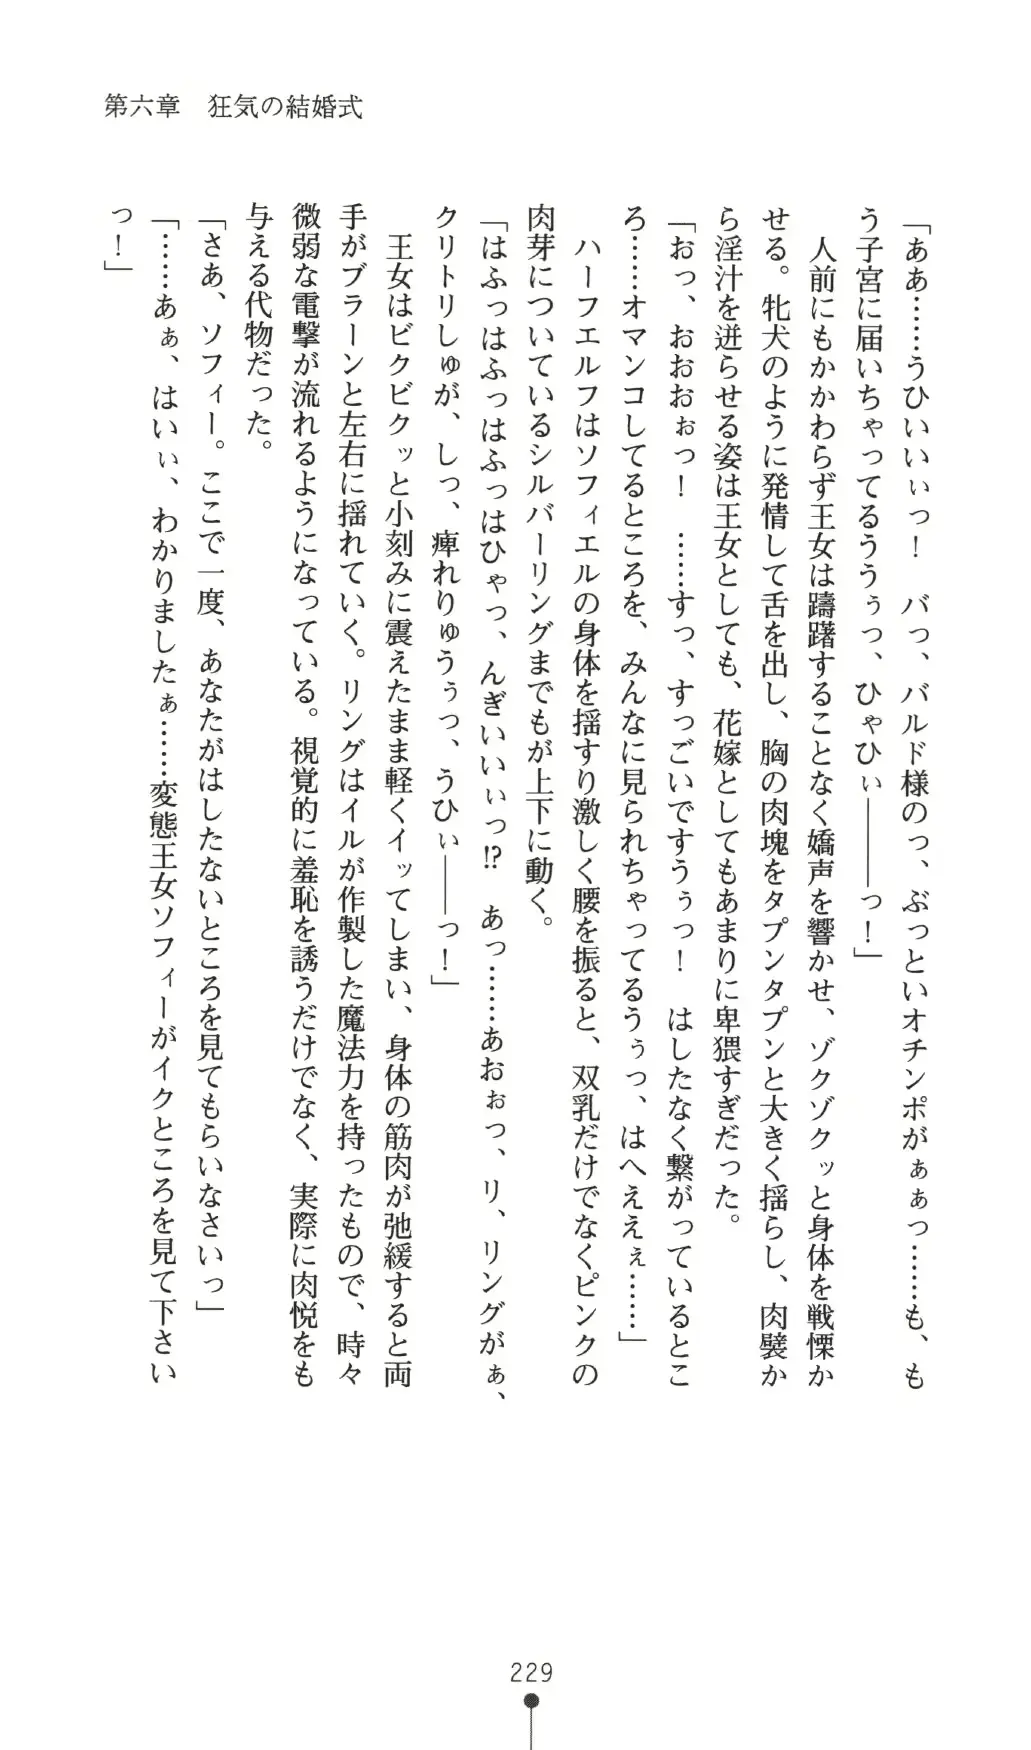 第六章　狂気の結婚式
「ああ……うひいいぃっ！　バっ、バルド様のっ、ぶっといオチンポがぁぁっ……も、も
う子宮に届いちゃってるううぅっ、ひゃひぃ――――っ！」
　人前にもかかわらず王女は躊躇することなく嬌声を響かせ、ゾクゾクッと身体を戦慄か
せる。牝犬のように発情して舌を出し、胸の肉塊をタプンタプンと大きく揺らし、肉襞か
ら淫汁を迸らせる姿は王女としても、花嫁としてもあまりに卑猥すぎだった。
「おっ、おおおぉっ！　……すっ、すっごいですうぅっ！　はしたなく繋がっているとこ
ろ……オマンコしてるところを、みんなに見られちゃってるうぅっ、はへええぇ……」
　ハーフエルフはソフィエルの身体を揺すり激しく腰を振ると、双乳だけでなくピンクの
肉芽についているシルバーリングまでもが上下に動く。
「はふっはふっはふっはひゃっ、んぎいいぃっ⁉　あっ……あおぉっ、リ、リングがぁ、
クリトリしゅが、しっ、痺れりゅうぅっ、うひぃ――っ！」
　王女はビクビクッと小刻みに震えたまま軽くイッてしまい、身体の筋肉が弛緩すると両
手がブラーンと左右に揺れていく。リングはイルが作製した魔法力を持ったもので、時々
微弱な電撃が流れるようになっている。視覚的に羞恥を誘うだけでなく、実際に肉悦をも
与える代物だった。
「さあ、ソフィー。ここで一度、あなたがはしたないところを見てもらいなさいっ」
「……あぁ、はいぃ、わかりましたぁ……変態王女ソフィーがイクところを見て下さい
っ！」
229